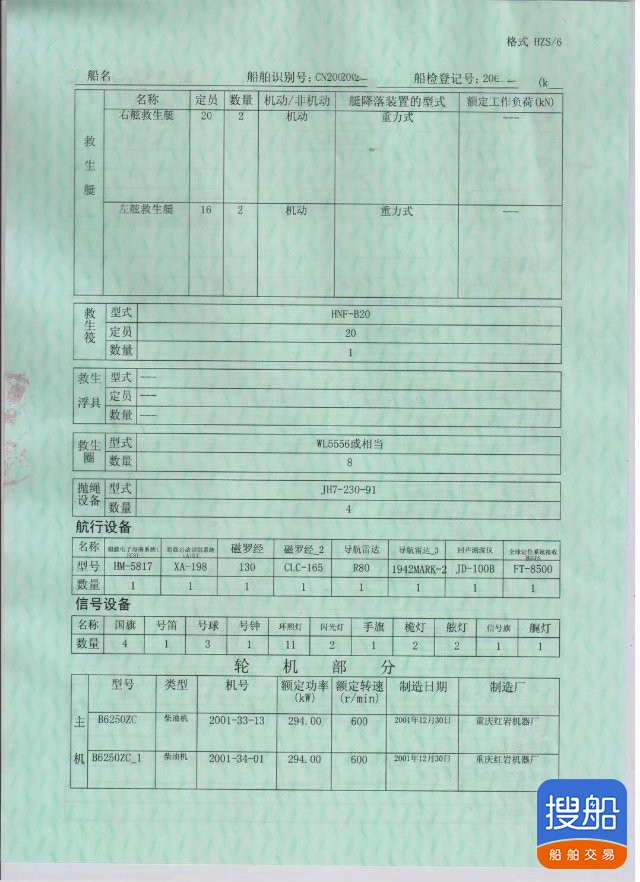 格式 HZS/6
船名 船舶识别号: CN2002002 船检登记号: 200 (k
名称 定员 数量 机动/非机动 艇降落装置的型式 额定工作负荷(kN)
救生艇
右舷救生艇 20 2 机动 重力式 ---
左舷救生艇 16 2 机动 重力式 ---
救生筏
型式 HNF-B20
定员 20
数量 1
救生浮具
型式 ---
定员 ---
数量 ---
救生圈
型式 WL5556或相当
数量 8
抛绳设备
型式 JH7-230-91
数量 4
航行设备
名称 船载电子海图系统( 船载自动识别系统 磁罗经 磁罗经_2 导航雷达 导航雷达_3 回声测深仪 全球定位系统接收
型号 HM-5817 XA-198 130 CLC-165 R80 1942MARK-2 JD-100B FT-8500
数量 1 1 1 1 1 1 1 1
信号设备
名称 国旗 号笛 号球 号钟 环照灯 闪光灯 手旗 桅灯 舷灯 信号旗 艉灯
数量 4 1 3 1 11 2 1 2 2 1 1
轮机部分
型号 类型 机号 额定功率(kW) 额定转速(r/min) 制造日期 制造厂
主机
B6250ZC 柴油机 2001-33-13 294.00 600 2001年12月30日 重庆红岩机器厂
B6250ZC_1 柴油机 2001-34-01 294.00 600 2001年12月30日 重庆红岩机器厂
搜船
船舶交易